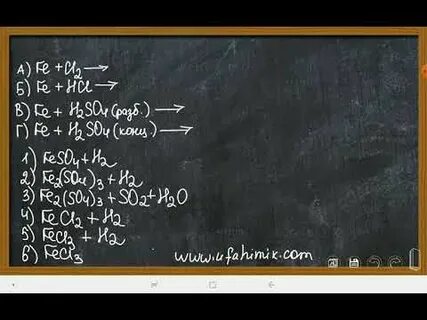 А) Fe + Cl₂ →
Б) Fe + HCl →
В) Fe + H₂SO₄ (разб.) →
Г) Fe + H₂SO₄ (конц) →
1) FeSO₄ + H₂
2) Fe₂(SO₄)₃ + H₂
3) Fe₂(SO₄)₃ + SO₂ + H₂O
4) FeCl₂ + H₂
5) FeCl₃ + H₂
6) FeCl₃
www.ufahimix.com